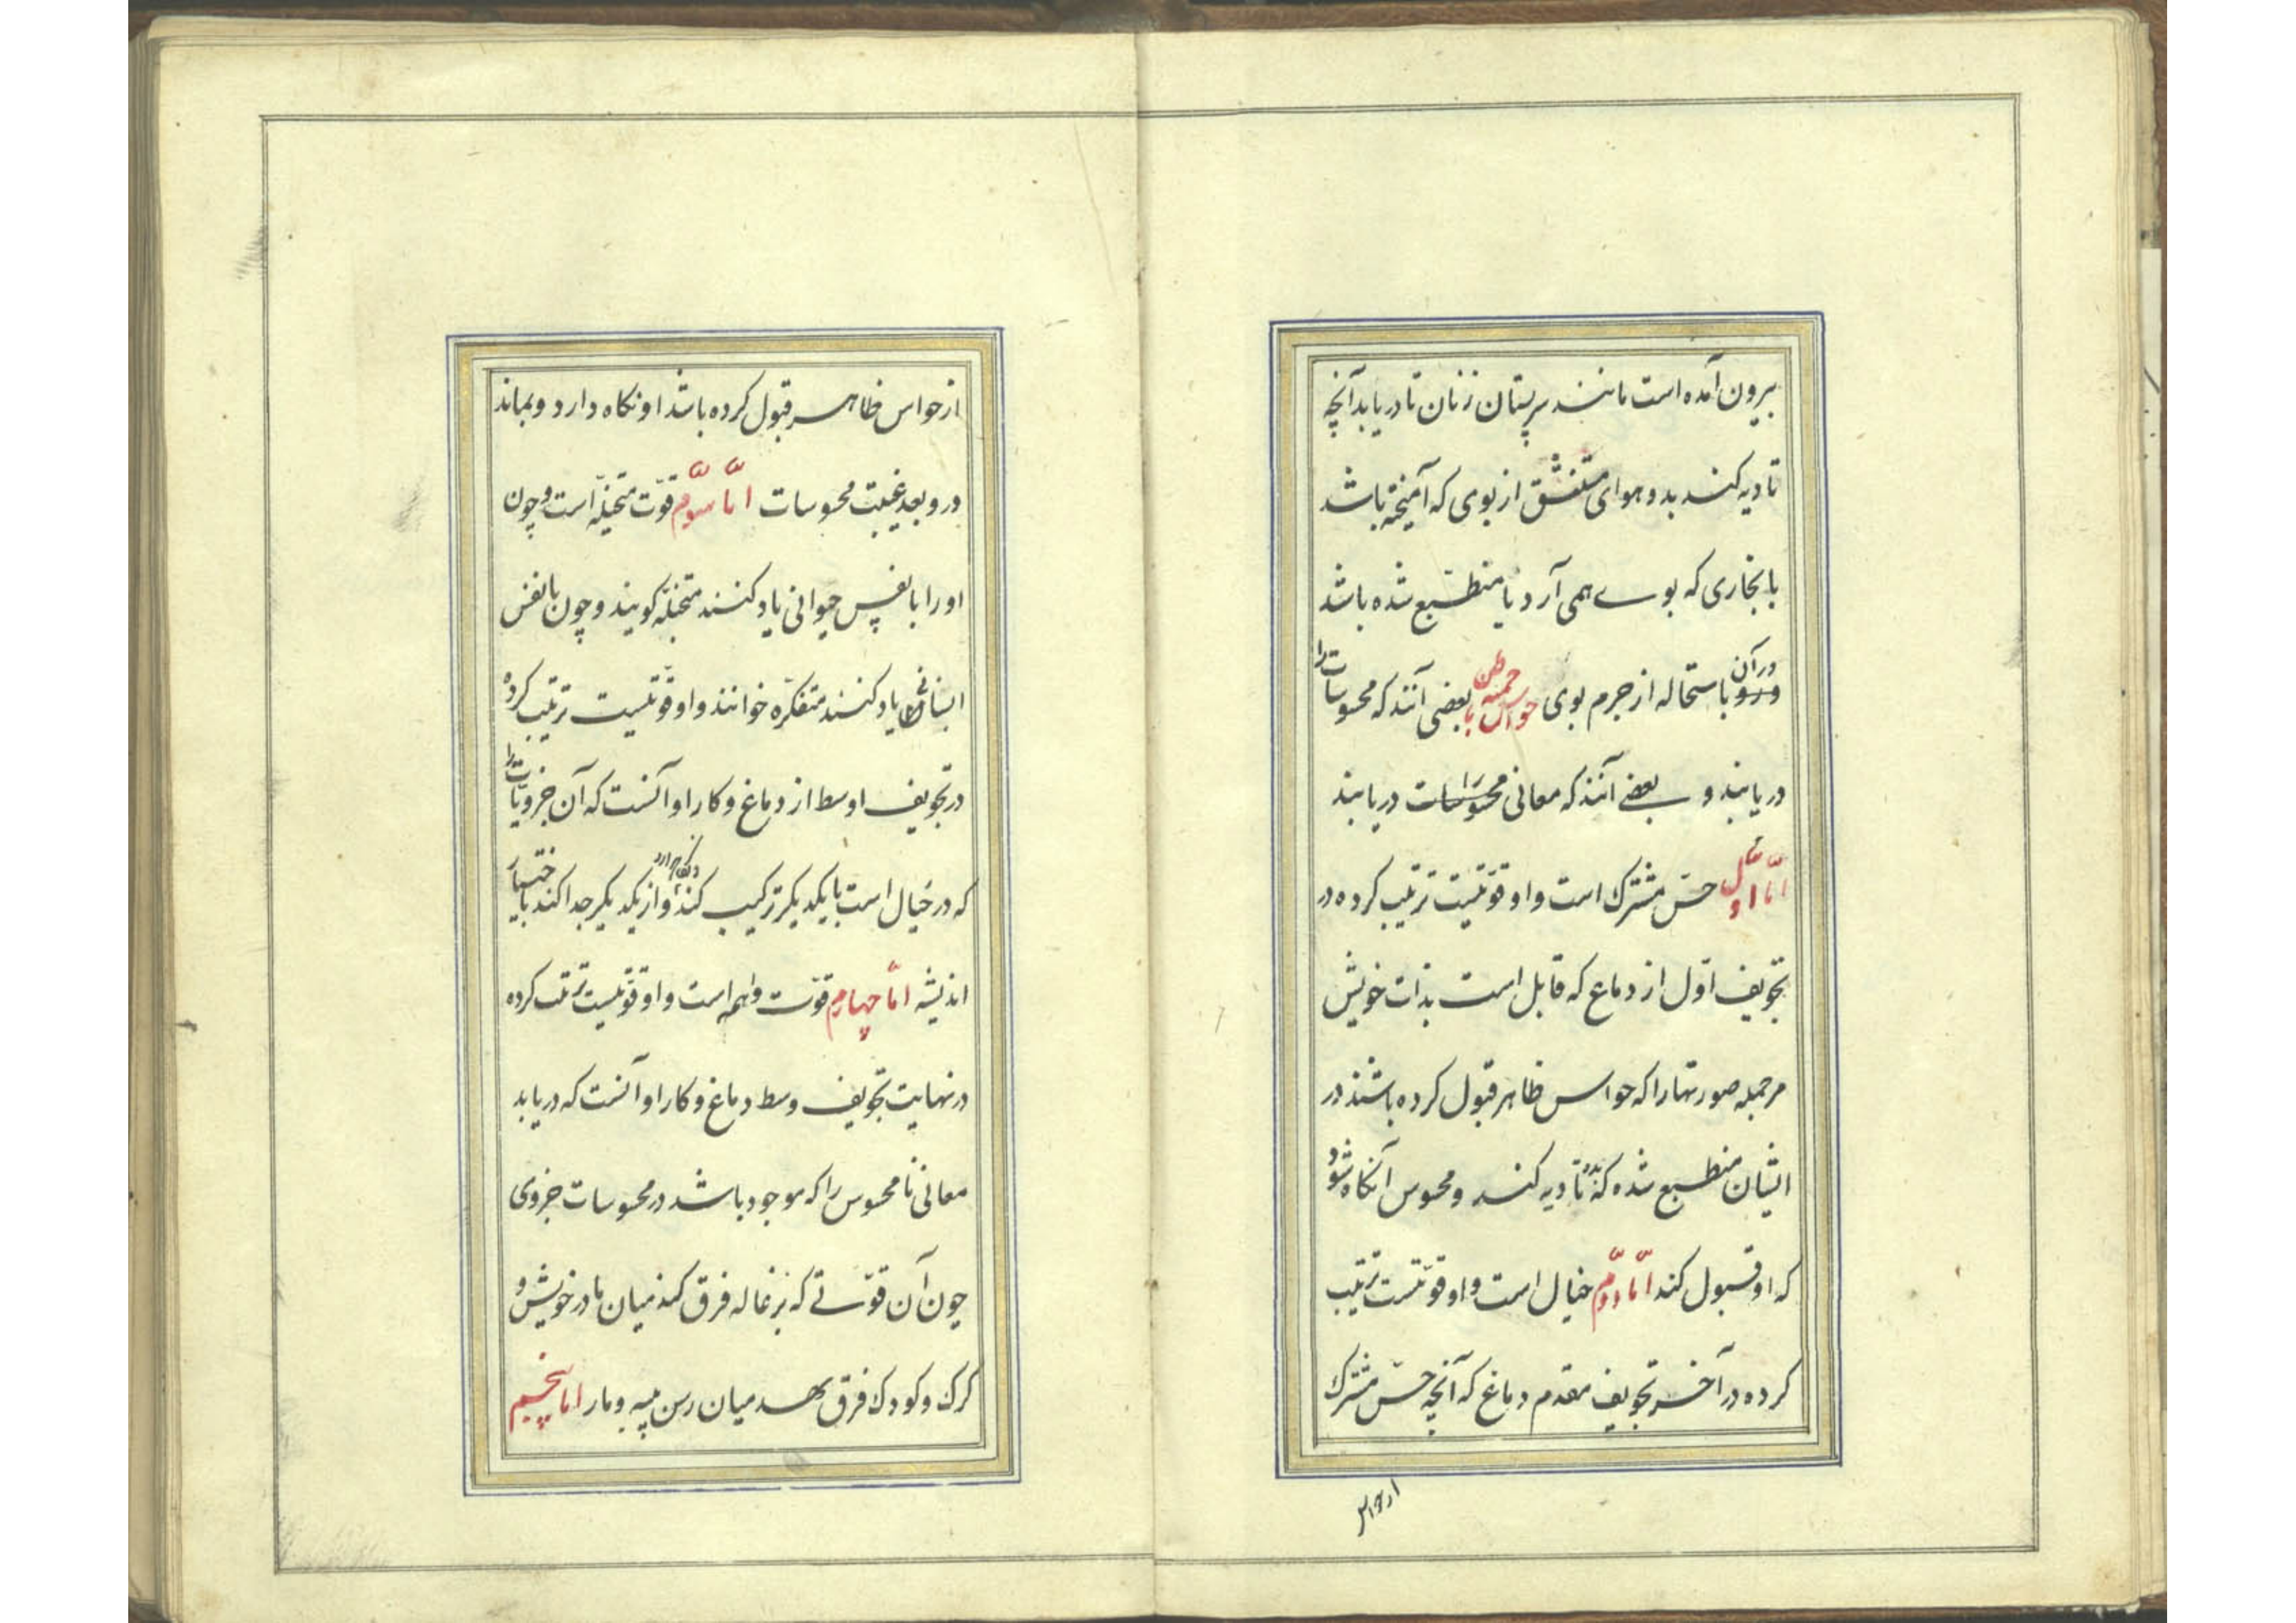 بیرون آمده است مانند سر پستان زنان تا دریابد آنچه
تادیه کند بدو هوای متنشق از بوی که آمیخته باشد
با بخاری که بوے همی آرد یا منطبع شده باشد
درآن باستحاله از جرم بوی حواس خمسه باطن بعضی آنند که محسوسات را
دریابند و بعضے آنند که معانی محسوسات را دریابند
امّا اوّل حسّ مشترک است و او قوّتیست ترتیب کرده در
تجویف اوّل از دماغ که قابل است بذات خویش
مر جمله صورتها را که حواس ظاهر قبول کرده باشند در
ایشان منطبع شده که بدو تادیه کند و محسوس آنکاه شود
که او قبول کند امّا دوّم خیال است و او قوّتیست ترتیب
کرده در آخر تجویف مقدم دماغ که آنچه حسّ مشترک
از حواس
از حواس ظاهر قبول کرده باشد او نکاه دارد و بماند
درو بعد غیبت محسوسات امّا سوّم قوّت متخیلّه است و چون
او را با نفس حیوانی یاد کنند متخیلّه کویند و چون با نفس
انسانی یاد کنند متفکرّه خوانند و او قوّتیست ترتیب کرده
در تجویف اوسط از دماغ و کار او آنست که آن جزویّات را
که در خیال است با یکدیکر ترکیب کند و از یکدیکر جدا کند باختیار
اندیشه امّا چهارم قوّت واهمه است و او قوّتیست ترتیب کرده
در نهایت تجویف وسط دماغ و کار او آنست که دریابد
معانی نا محسوس را که موجود باشد در محسوسات جزوی
چون آن قوّتے که بزغاله فرق کند میان مادر خویش و
کرک و کودک فرق نهد میان رسن پیسه و مار اما پنجم